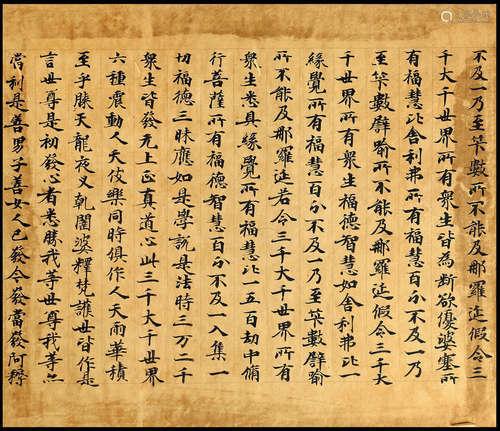 不及一乃至筭數所不能及那羅延假令三
千大千世界所有衆生皆為斷欲優婆塞所
有福慧比舍利弗所有福慧百分不及一乃
至筭數譬喻所不能及那羅延假令三千大
千世界所有衆生福德智慧如舍利弗比一
緣覺所有福慧百分不及一乃至筭數譬喻
所不能及那羅延若令三千大千世界所有
衆生悉具緣覺所有福慧比一五百劫中脩
行菩薩所有福德智慧百分不及一入集一
切福德三昧應如是學說是法時三万二千
衆生皆發无上正真道心此三千大千世界
六種震動人天伎樂同時俱作人天雨華積
至于膝天龍夜叉乾闥婆釋梵護世皆作是
言世尊是初發心者悉勝我等世尊我等亦
當利是善男子善女人已發今發當發阿耨